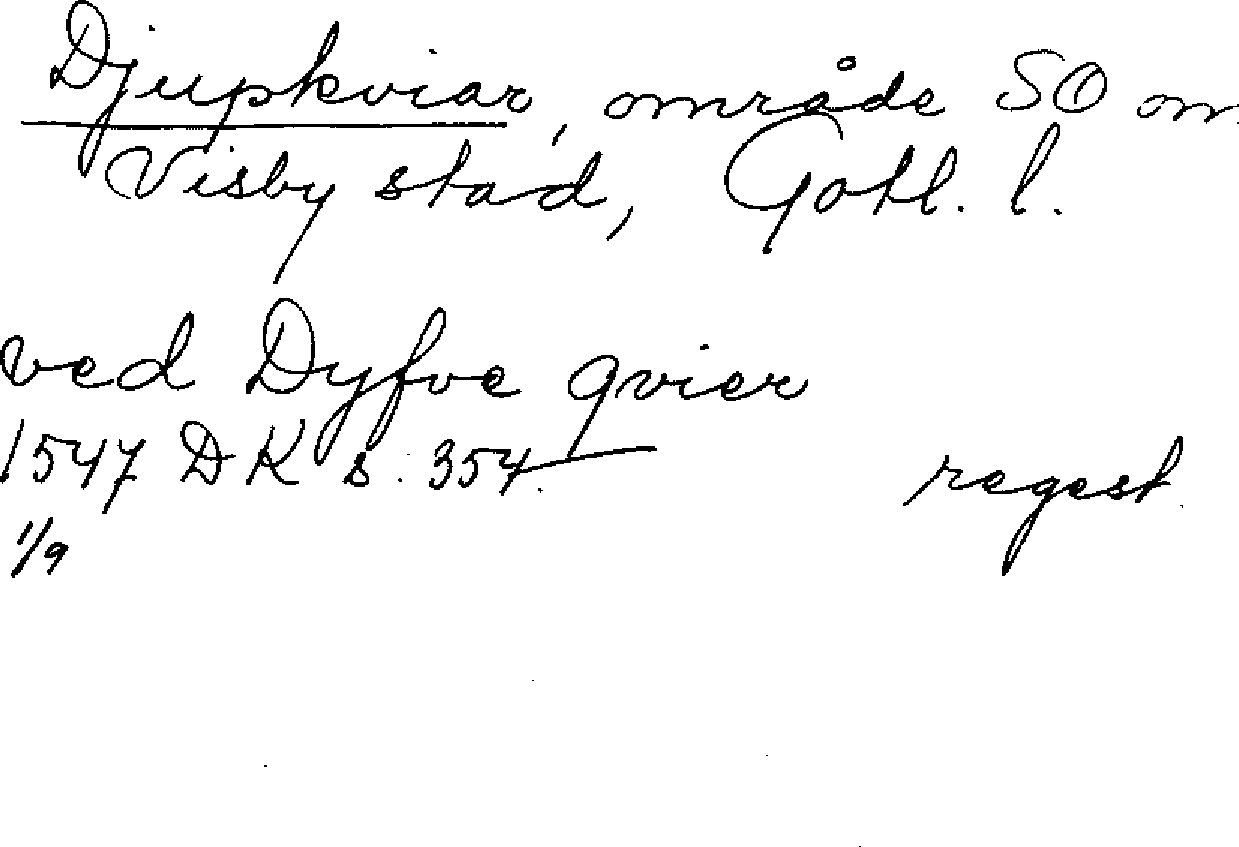 Djupkviar, område SO om
Visby stad, Gotl. l.
ved Dyfve qvier
1547 DK s. 354. regest.
1/9